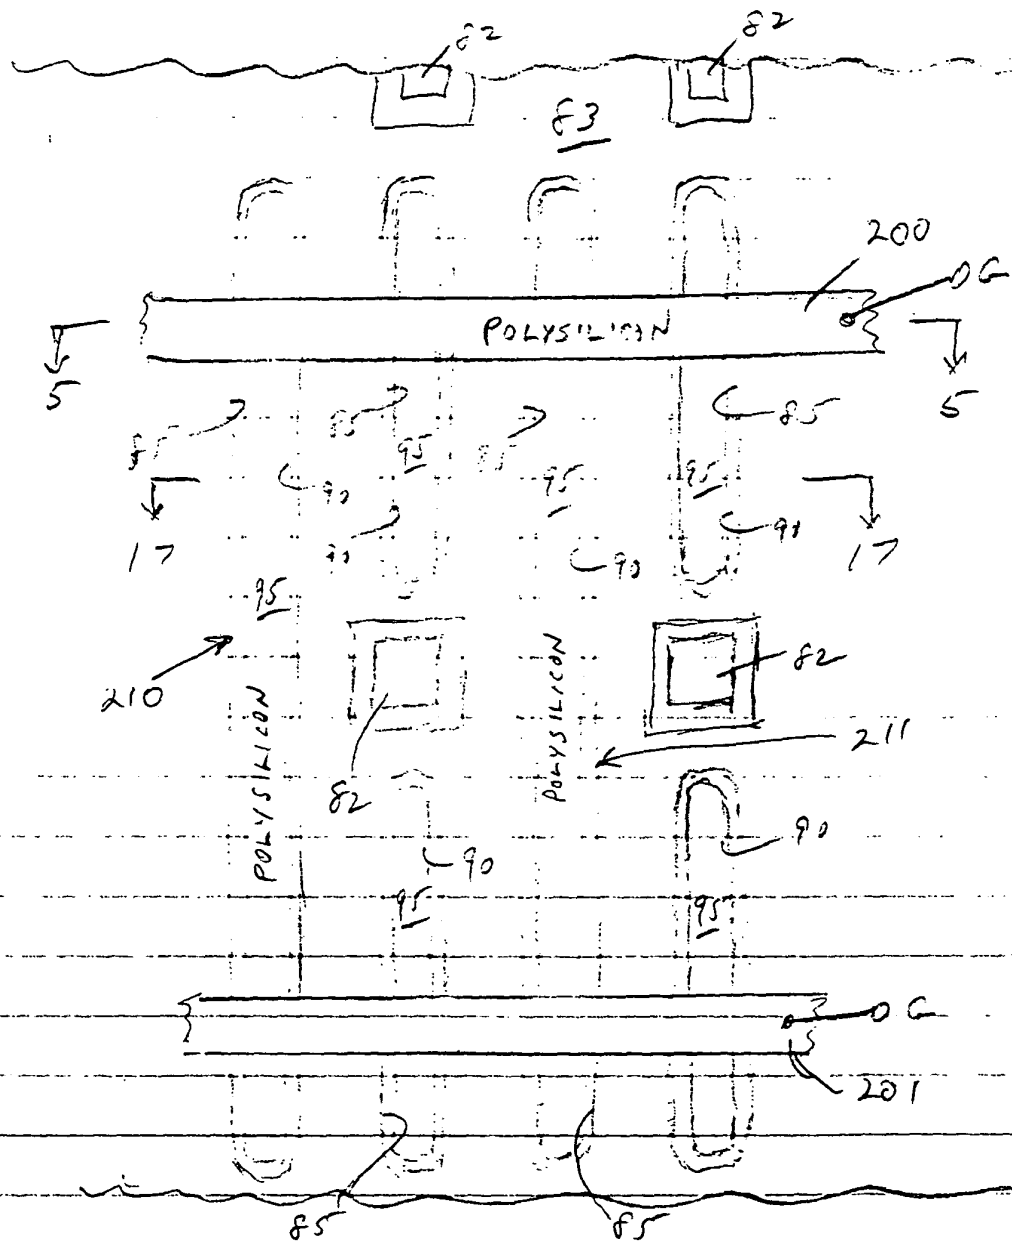 82 82
83
200
G
POLYSILICON
5 5
85 85 85 85
95
95 95
90 90
90 90
17 17
95
82
210
POLYSILICON POLYSILICON
211
82
90
90
95 95
G
201
85 85